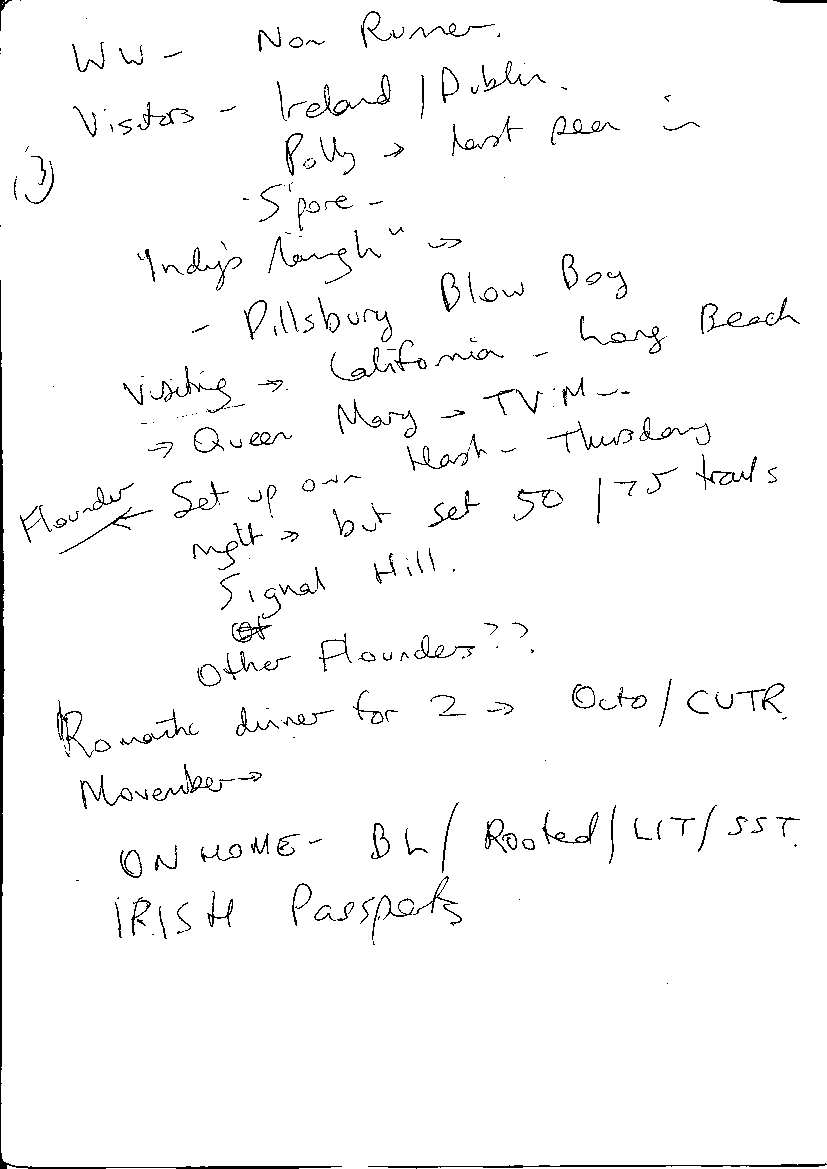 WW - Non Runner.
Visitors - Ireland / Dublin.
(3)
Polly → last seen in
S'pore -
"Indy's laugh" →
- Pillsbury Blow Boy
Visiting → California - Long Beach
→ Queen Mary → TV:M--
Flounder ← Set up own Hash - Thursday
night → but set 50 / 75 trails
Signal Hill.
Other Flounders??.
Romantic dinner for 2 → Octo / CUTR.
Movember →
ON HOME - BL / Rooted / LIT / SST.
IRISH Passports